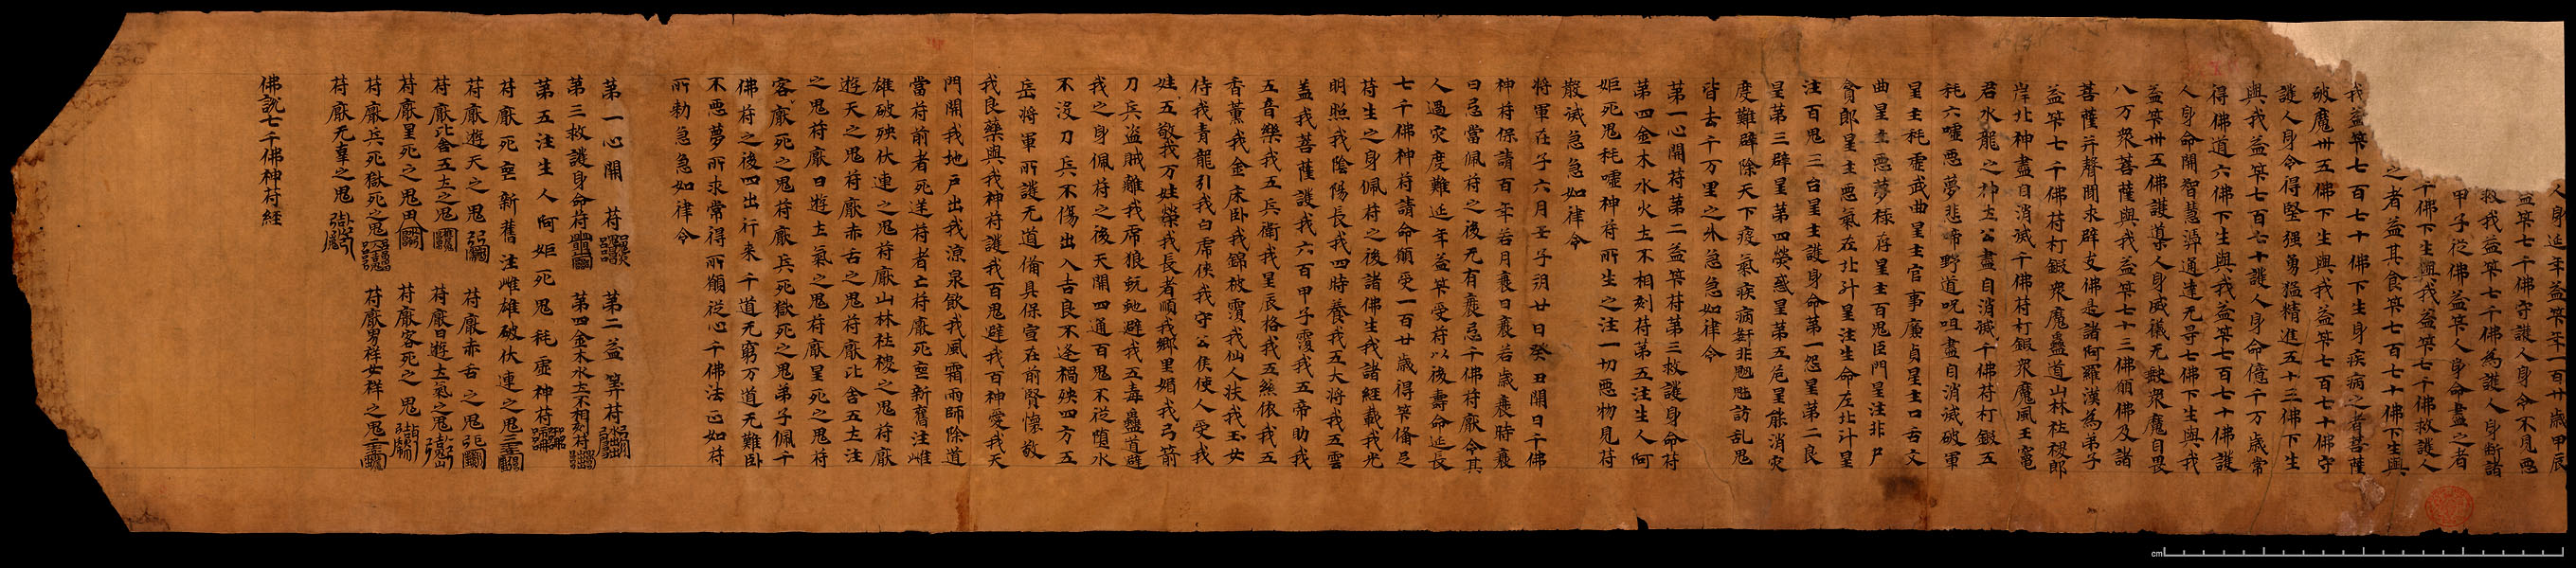 人身延年益筭筭一百廿歲甲辰
益筭七千佛守護人身命不見惡
救我益筭七千佛為護人身斷諸
甲子從佛益筭人身命盡之者
千佛下生與我益筭七千佛救護人
之者益其食筭七百七十佛下生與
我益筭七百七十佛下生身疾病之者菩薩
破魔卅五佛下生與我益筭七百七十佛守
護人身令得堅强勇猛精進五十三佛下生
與我益筭七百七十護人身命億千万歲常
得佛道六佛下生與我益筭七百七十佛護
人身命開智慧淂通達无㝵七佛下生與我
益筭卅五佛護導人身威儀无缺衆魔自畏
八万衆菩薩與我益筭七十三佛願佛及諸
菩薩并聲聞求辟支佛是諸阿羅漢為弟子
益筭七千佛符打鍛衆魔蠱道山林社稷郎
岸北神盡自消滅千佛符打鍛衆魔風王竃
君水龍之神土公盡自消滅千佛符打鍛五
秏六噓惡夢悲啼野道呪咀盡自消滅破軍
星主秏虛武曲星主官事廉貞星主口舌文
曲星主惡夢祿存星主百鬼臣門星注非尸
貪郎星主惡氣在北斗星注生命左北斗星
注百鬼三台星主護身命第一怨星第二良
星第三辟星第四熒惑星第五危星能消灾
度難辟除天下疫氣疾病姧非魍魎訪乱鬼
皆去千万里之外急急如律令
第一心開符第二益筭符第三救護身命符
第四金木水火土不相刻符第五注生人阿
姖死鬼秏噓神符所生之注一切惡物見符
散滅急急如律令
將軍在子六月壬子朔廿日癸丑開日千佛
神符保請百年若月衰日衰若歲衰時衰
日忌當佩符之後无有衰忌千佛符厭令其
人過灾度難延年益筭受符以後壽命延長
七千佛神符請命願受一百廿歲得筭俻足
符生之身佩符之後諸佛生我諸經載我光
明照我陰陽長我四時養我五大將我五雲
盖我菩薩護我六百甲子覆我五帝助我
五音樂我五兵衛我星辰格我五㷼依我五
香薰我金床卧我錦被覆我仙人扶我玉女
侍我青龍引我白虎俠我守公侯使人受我
姓五敬我万姓榮我長者順我鄉里媚我弓箭
刀兵盜賊離我虎狼蚖虵避我五毒蠱道避
我之身佩符之後天開四通百鬼不從堕水
不沒刀兵不傷出入吉良不逢禍殃四方五
岳將軍所護无道俻具保宣在前腎懔敬
我良藥與我神符護我百鬼避我百神愛我天
門開我地戶出我涼泉飲我風霜雨師除道
當符前者死逆符者亡符厭死䘮新舊注雌
雄破殃伏連之鬼符厭山林社稷之鬼符厭
遊天之鬼符厭赤舌之鬼符厭比舍五土注
之鬼符厭日遊土氣之鬼符厭星死之鬼符
客厭死之鬼符厭兵死獄死之鬼弟子佩千
佛符之後四出行来千道无窮万道无難卧
不惡夢所求常得所願從心千佛法正如符
所勅急急如律令
第一心開符 第二益筭符
第三救護身命符 第四金木水土不相刻符
第五注生人阿姖死鬼秏虛神符
符厭死䘮新舊注雌雄破伏連之鬼
符厭遊天之鬼 符厭赤舌之鬼
符厭比舍五土之鬼 符厭日遊土氣之鬼
符厭星死之鬼 符厭客死之鬼
符厭兵死獄死之鬼 符厭男祥女祥之鬼
符厭无辜之鬼
佛說七千佛神符経
cm